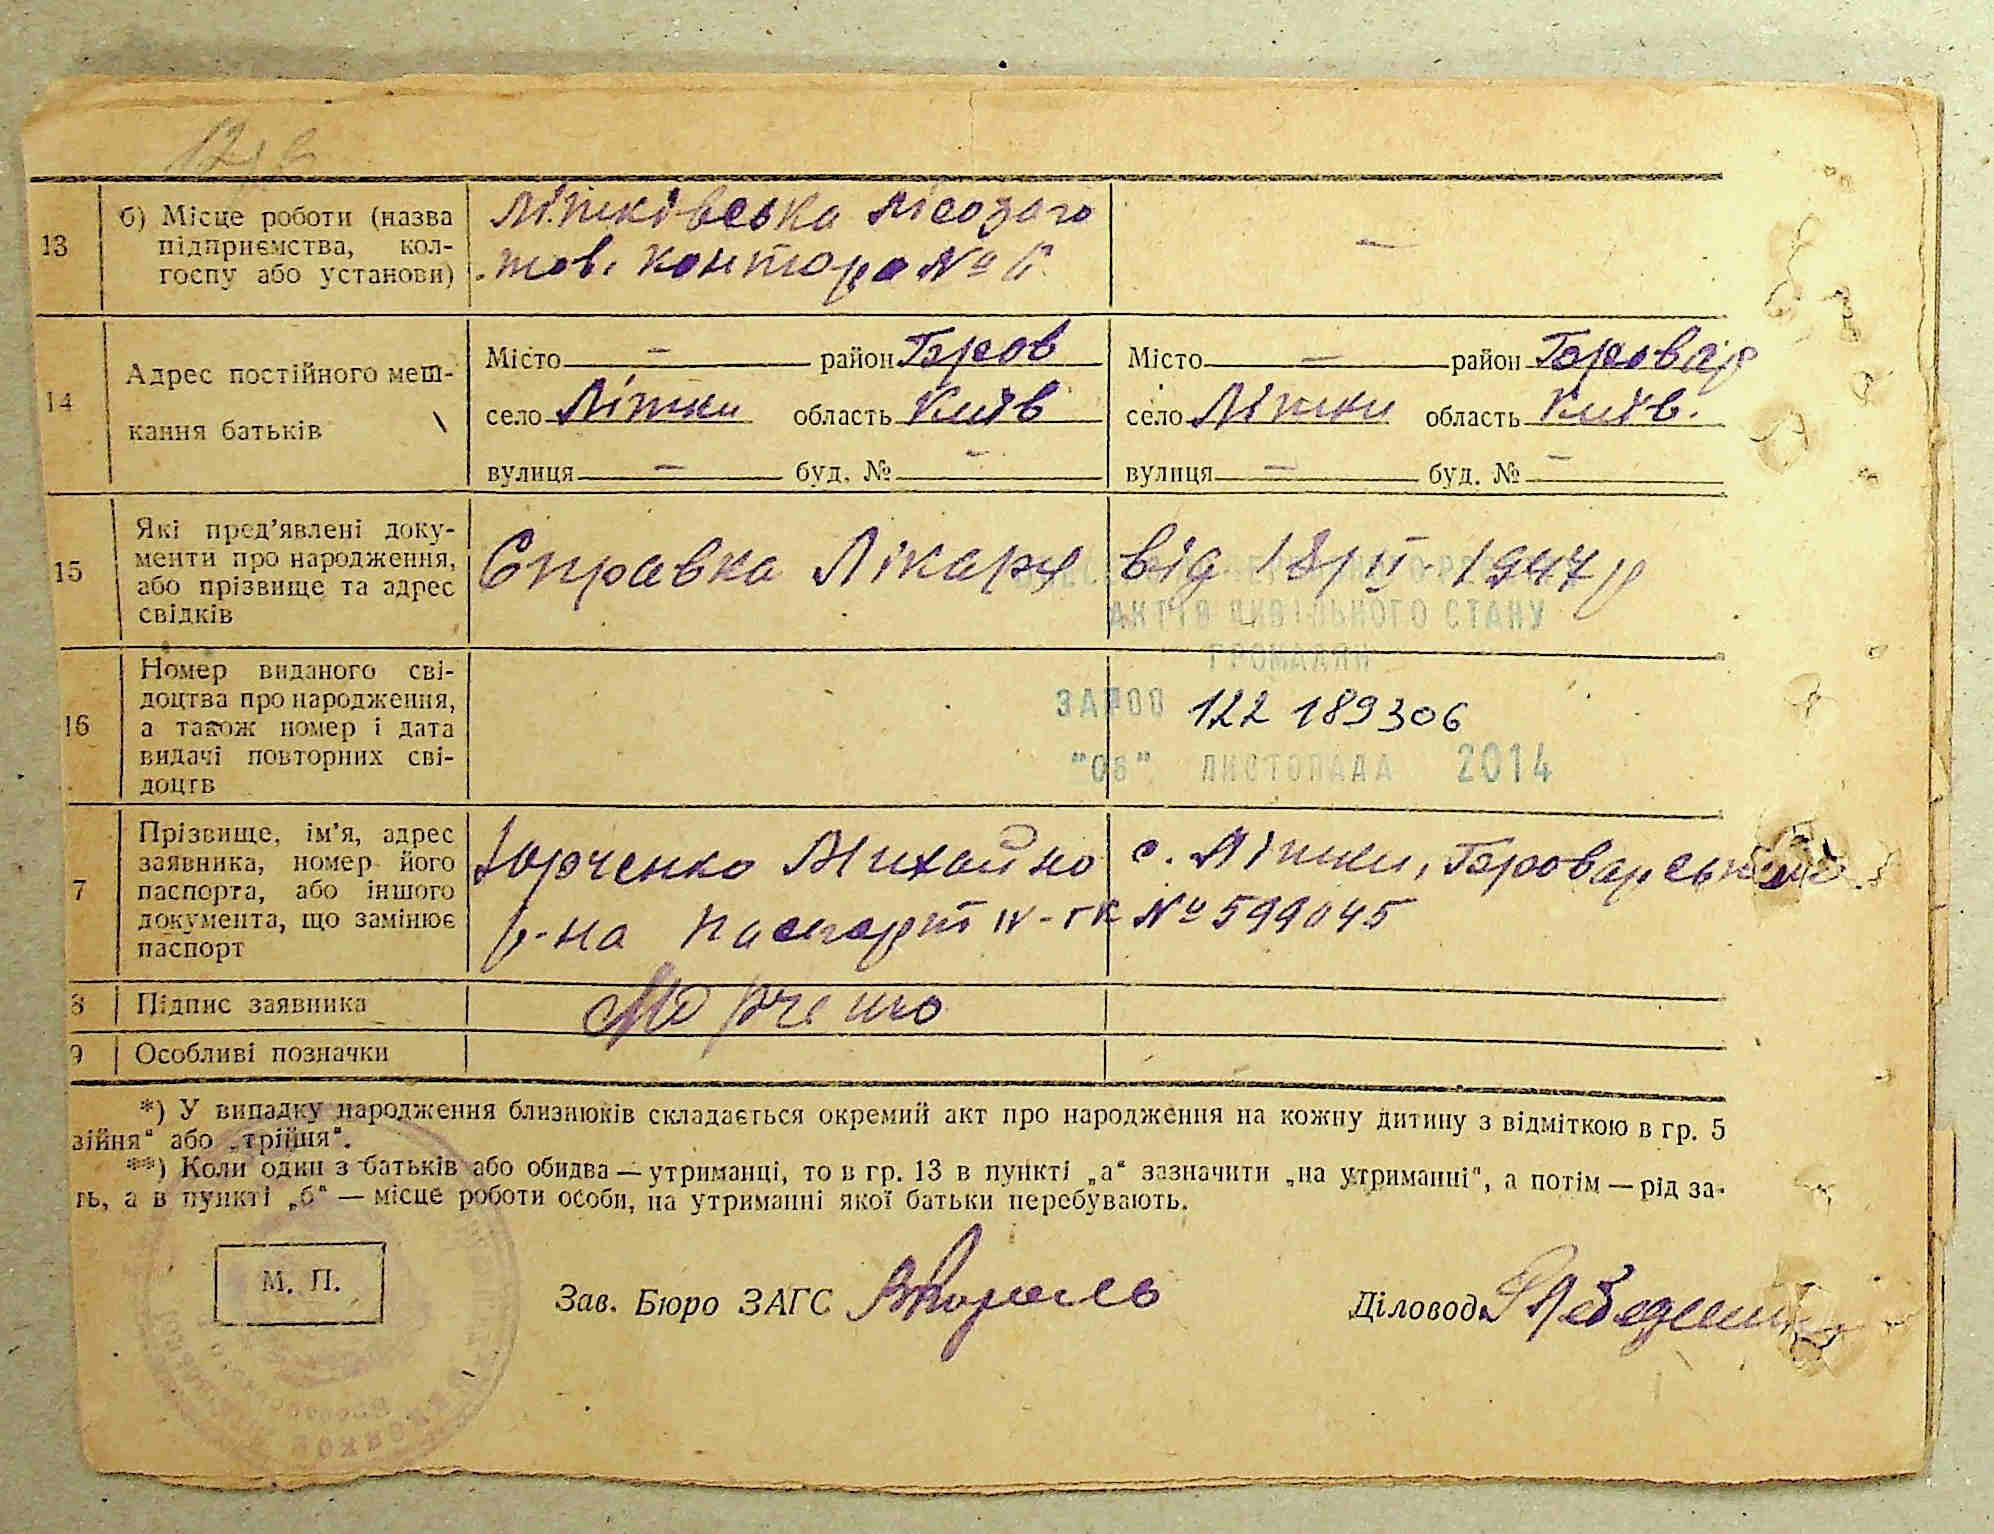 13
б) Місце роботи (назва
підприємства, кол-
госпу або установи)
Літківська лісозаго
тов. контора №
14
Адрес постійного меш-
кання батьків
Місто — район Бров
село Літки область Київ
вулиця — буд. № —
Місто — район Бровар
село Літки область Київ.
вулиця — буд. № —
15
Які пред’явлені доку-
менти про народження,
або прізвище та адрес
свідків
Справка Лікаря від 18/II-1947 р
АКТІВ ЦИВІЛЬНОГО СТАНУ
ГРОМАДЯН
16
Номер виданого сві-
доцтва про народження,
а також номер і дата
видачі повторних сві-
доцтв
122 189306
"06" ЛИСТОПАДА 2014
7
Прізвище, ім’я, адрес
заявника, номер його
паспорта, або іншого
документа, що замінює
паспорт
Юрченко Михайло с. Літки, Броварського
р-на паспорт IV-ГК № 599045
8
Підпис заявника
9
Особливі позначки
*) У випадку народження близнюків складається окремий акт про народження на кожну дитину з відміткою в гр. 5
війня“ або „трійня“.
**) Коли один з батьків або обидва — утриманці, то в гр. 13 в пункті „а“ зазначити „на утриманні“, а потім — рід за-
ть, а в пункті „б“ — місце роботи особи, на утриманні якої батьки перебувають.
М. П.
Зав. Бюро ЗАГС
Діловод